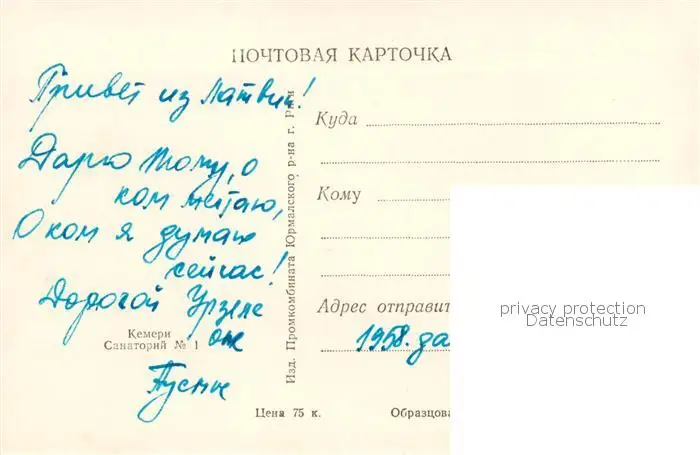 ПОЧТОВАЯ КАРТОЧКА
Привет из Латвии!
Дарю тому, о
ком мечтаю,
О ком я думаю
сейчас!
Дорогой Урзеле
от
Кемери
Санаторий № 1
Изд. Промкомбината Юрмалского р-на г. Риги
Куда
Кому
Адрес отправит
1958.
Цена 75 к.
Образцова
privacy protection
Datenschutz